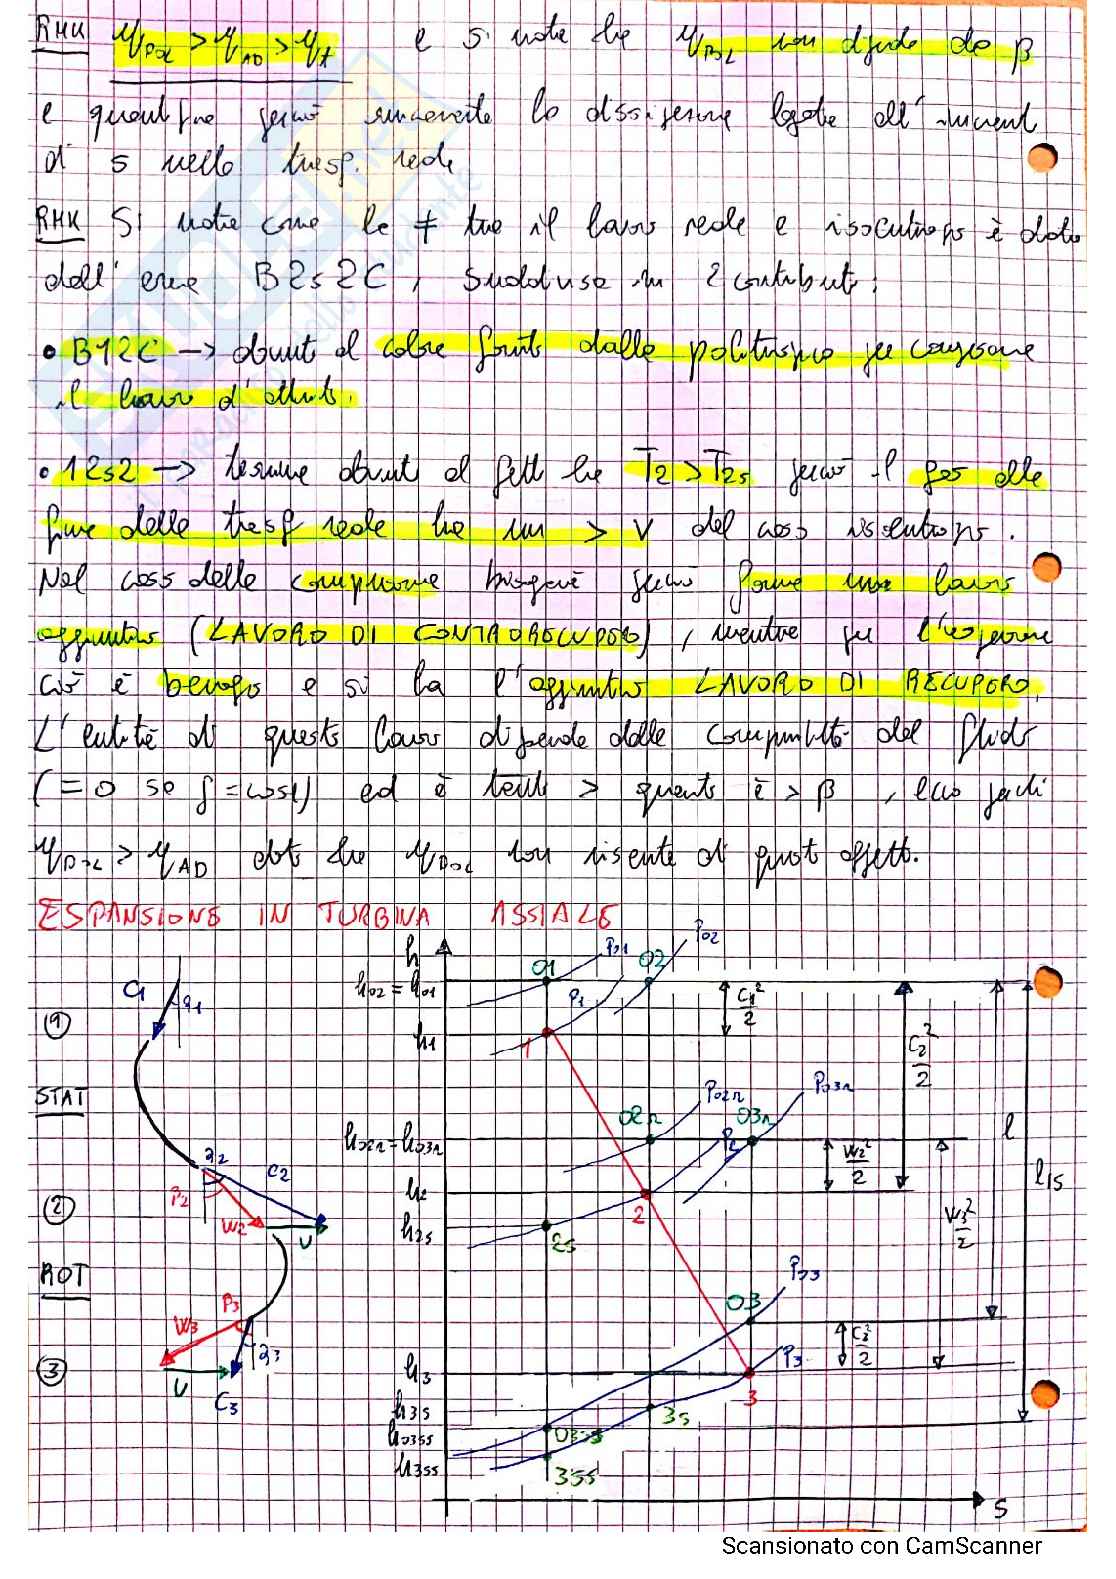 RMK η_POL > η_AD > η_t e si note che η_POL non dipende da β
e quantifica perciò solamente la dissipazione legata all'increment
di s nella trasf. reale
RMK Si note come la ≠ tra il lavoro reale e isoentropico è data
dall'area B2s2C, suddivisa in 2 contributi:
• B12C → dovuto al calore fornito dalla politropica per compensare
il lavoro d'attrito.
• 12s2 → termine dovuto al fatto che T2 > T2s perciò il gas alla
fine della trasf reale ha un > v del caso isoentropico.
Nel caso della compressione bisogna perciò fornire un lavoro
aggiuntivo (LAVORO DI CONTRORECUPERO), mentre per l'espansione
ciò è benefico e si ha l'aggiuntivo LAVORO DI RECUPERO.
L'entità di questo lavoro dipende dalla comprimibilità del fluido
(=0 se ρ=cost) ed è tanto > quanto è > β, ecco perchè
η_POL > η_AD dato che η_POL non risente di questo effetto.
ESPANSIONE IN TURBINA ASSIALE
h P01 P02
C1 α1 h02=h01 01 02 P1 C1²/2
① h1 1 C2²/2
STAT P02r P03r
h02r=h03r 02r 03r P2 W2²/2 l
α2 C2 β2 h2 2 l1s
② W2 U h2s 2s W3²/2
ROT P03
β3 W3 α3 03 C3²/2
③ U C3 h3 3 P3
h3s 3s
h03ss 03ss
h3ss 3ss
s
Scansionato con CamScanner